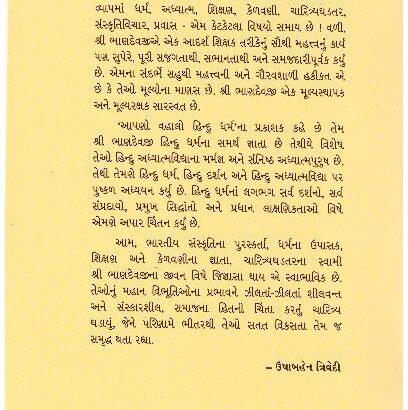 વ્યાપમાં ધર્મ, અધ્યાત્મ, શિક્ષણ, કેળવણી, ચારિત્ર્યઘડતર,
સંસ્કૃતિવિચાર, પ્રવાસ – એમ કેટકેટલા વિષયો સમાય છે ! વળી,
શ્રી ભાણદેવજીએ એક આદર્શ શિક્ષક તરીકેનું સૌથી મહત્ત્વનું કાર્ય
પણ સુપેરે, પૂરી સજગતાથી, સભાનતાથી અને સમજદારીપૂર્વક કર્યું
છે. એમના સંદર્ભે સહુથી મહત્ત્વની અને ગૌરવશાળી હકીકત એ
છે કે તેઓ મૂલ્યોના માણસ છે. શ્રી ભાણદેવજી એક મૂલ્યસ્થાપક
અને મૂલ્યરક્ષક સારસ્વત છે.
‘આપણો વહાલો હિન્દુ ધર્મ’ના પ્રકાશક કહે છે તેમ
શ્રી ભાણદેવજી હિન્દુ ધર્મના સમર્થ જ્ઞાતા છે તેથીયે વિશેષ
તેઓ હિન્દુ અધ્યાત્મવિદ્યાના મર્મજ્ઞ અને સંનિષ્ઠ અધ્યાત્મપુરુષ છે.
તેથી તેમણે હિન્દુ ધર્મ, હિન્દુ દર્શન અને હિન્દુ અધ્યાત્મવિદ્યા પર
પુષ્કળ અધ્યયન કર્યું છે. હિન્દુ ધર્મનાં લગભગ સર્વ દર્શનો, સર્વ
સંપ્રદાયો, પ્રમુખ સિદ્ધાંતો અને પ્રધાન લાક્ષણિકતાઓ વિષે
એમણે અપાર ચિંતન કર્યું છે.
આમ, ભારતીય સંસ્કૃતિના પુરસ્કર્તા, ધર્મના ઉપાસક,
શિક્ષણ અને કેળવણીના જ્ઞાતા, ચારિત્ર્યઘડતરના સ્વામી
શ્રી ભાણદેવજીનાં જીવન વિષે જિજ્ઞાસા થાય એ સ્વાભાવિક છે.
તેઓનું મહાન વિભૂતિઓના પ્રભાવને ઝીલતાં-ઝીલતાં શીલવન્ત
અને સંસ્કારશીલ, સમાજના હિતની ચિંતા કરતું ચારિત્ર્ય
ઘડાયું, જેને પરિણામે ભીતરથી તેઓ સતત વિકસતા તેમ જ
સમૃદ્ધ થતા રહ્યા.
– ઉષાબહેન ત્રિવેદી